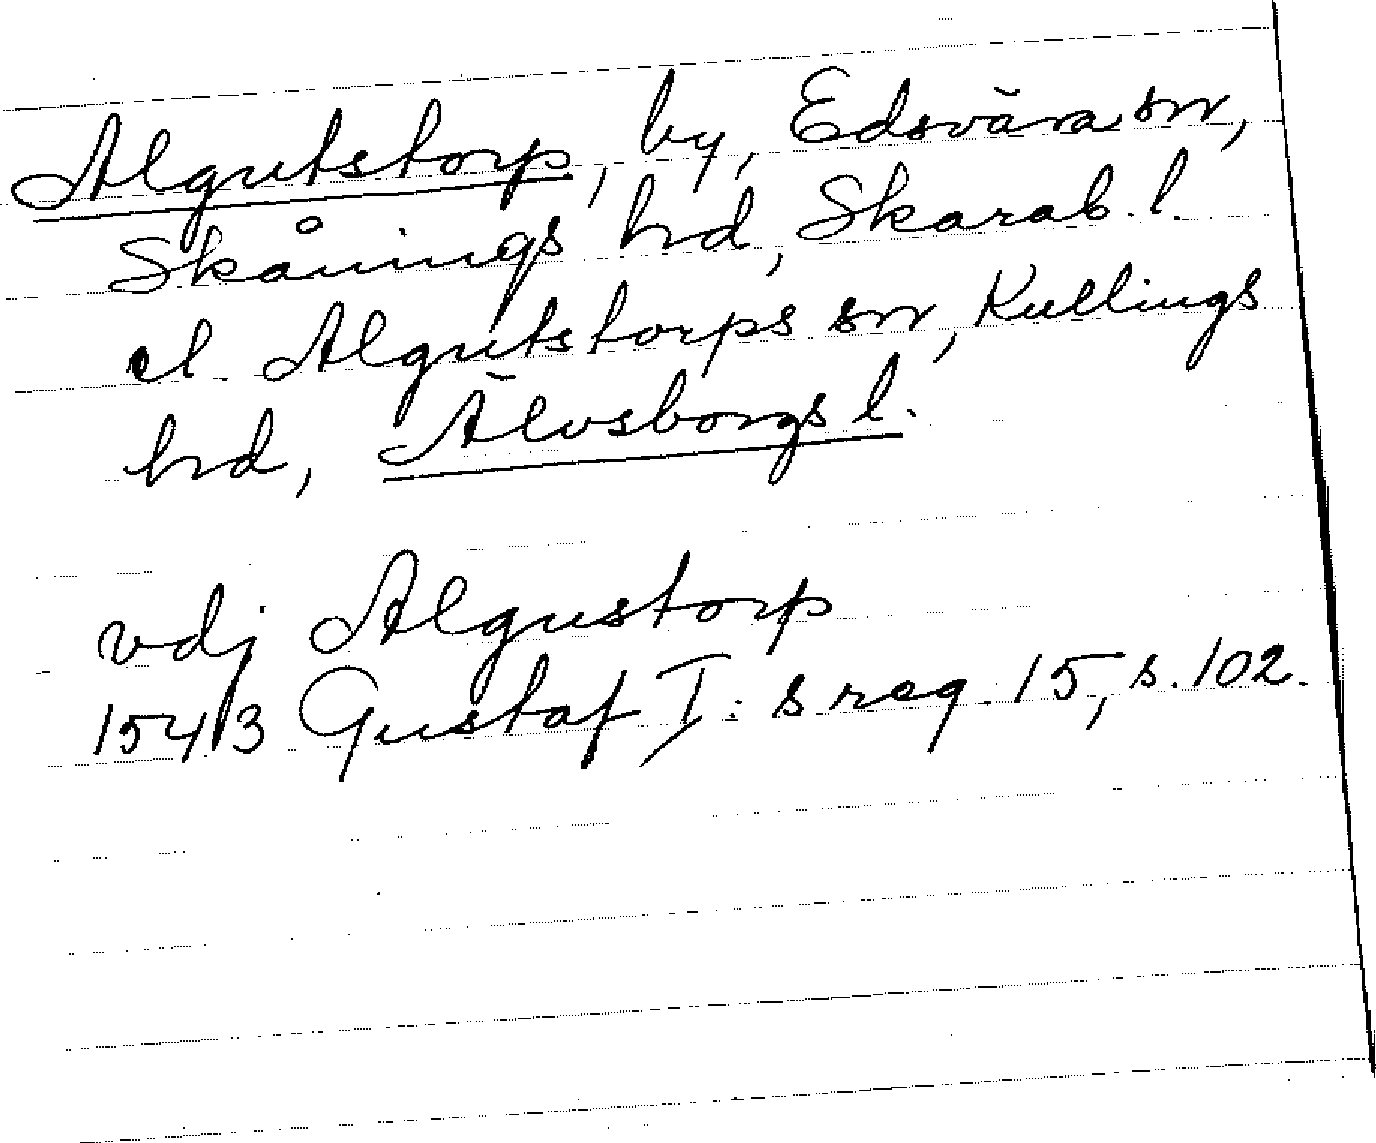 Algutstorp, by, Edsvära sn,
Skånings hd, Skarab. l.
el. Algutstorps sn, Kullings
hd, Älvsborgs l.
vdj Algustorp
1543 Gustaf I:s reg 15, s. 102.